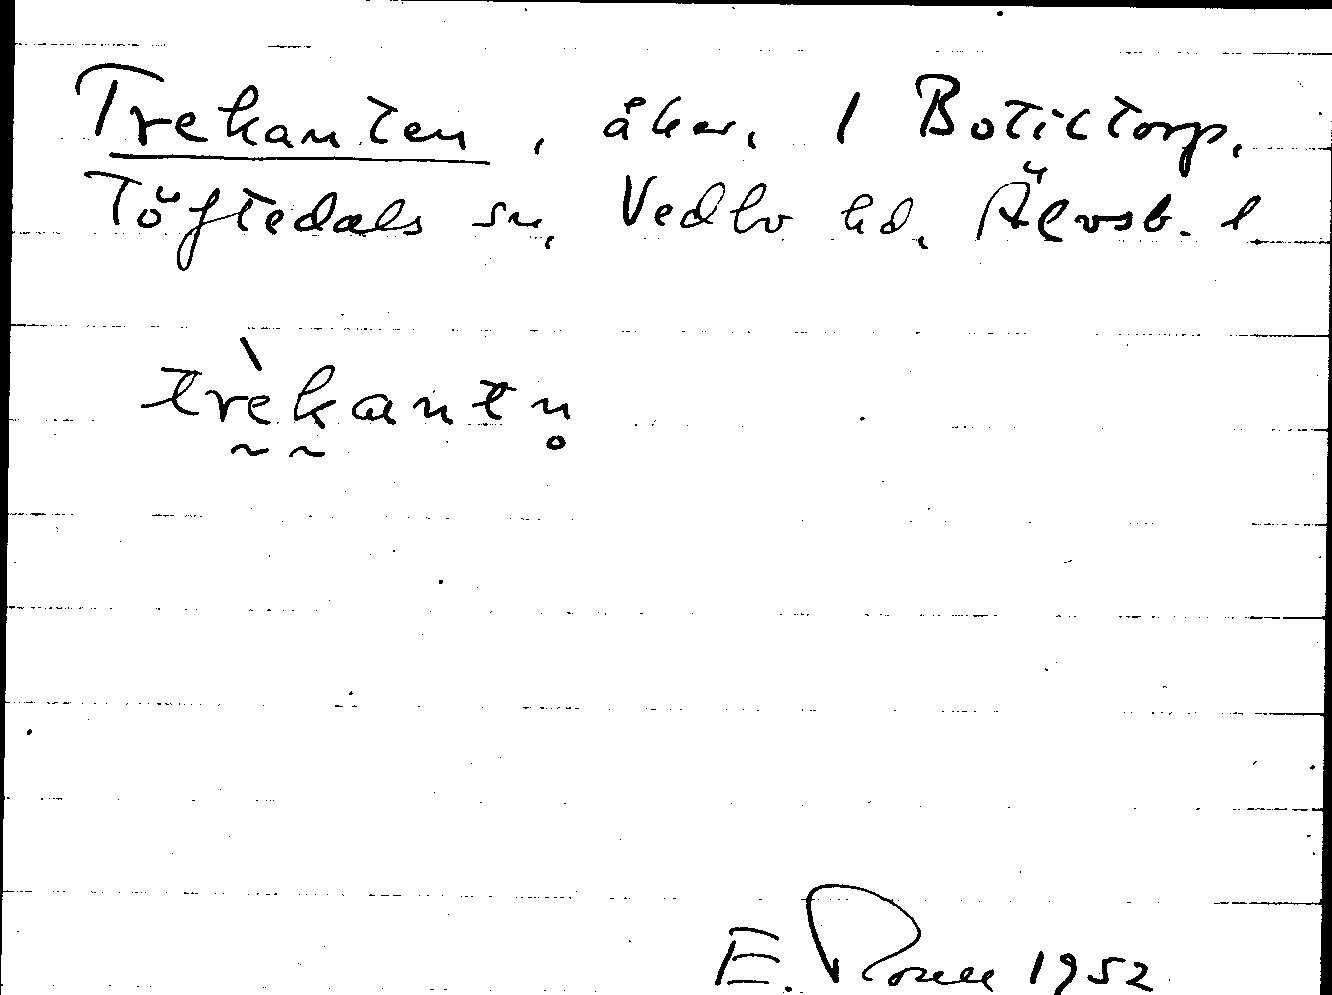 Trekanten, åker, 1 Botictorp,
Töftedals sn, Vedbo hd, Älvsb. l
trèkantn̥
E. 1952